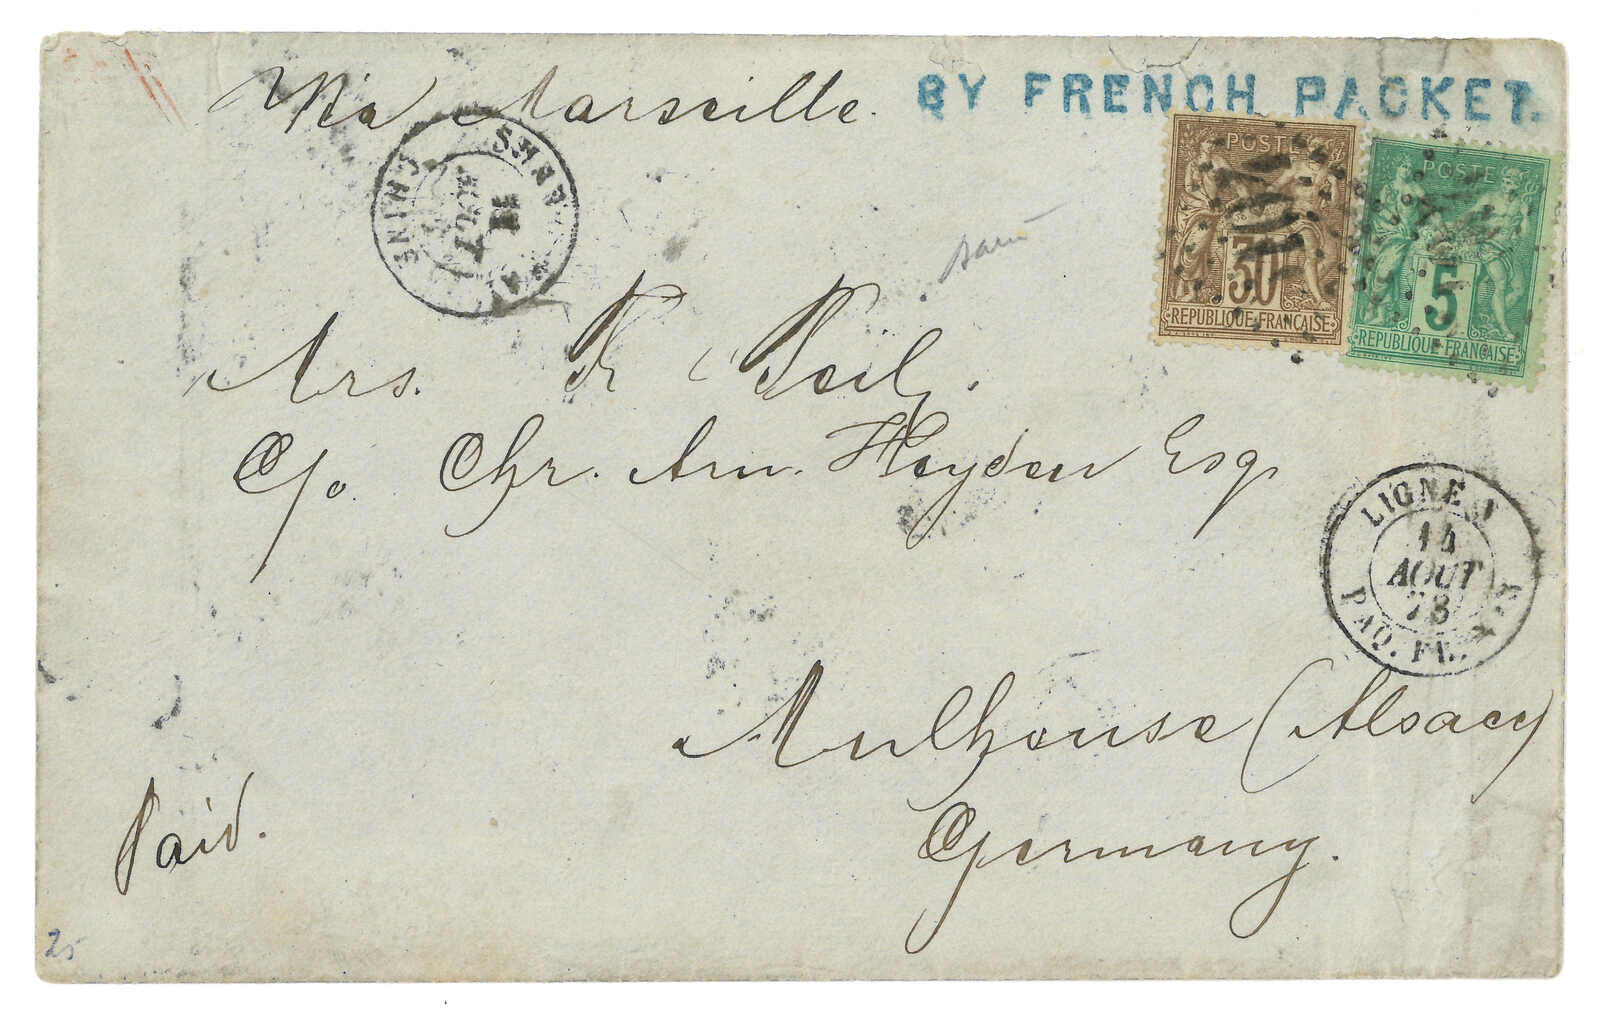 Via Marseille. BY FRENCH PACKET.
POSTE
30
REPUBLIQUE FRANÇAISE
POSTE
5
REPUBLIQUE FRANÇAISE
CHINE
AOUT
Mrs. R Beil.
C/o. Chr. Am. Heyden Esq.
LIGNE N
14
AOUT
78
PAQ. FR. N.
Mulhouse (Alsace)
Germany.
Paid.
25